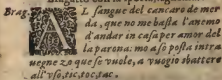 Brag. AL sangue del cancaro de mer
da, que no me basta l'anemo
d'andar in casa per amor del
la parona: mo a so posta intra
uegne zo que se vuole, a vuogio sbatter
all'uso, tic, toc, tac.